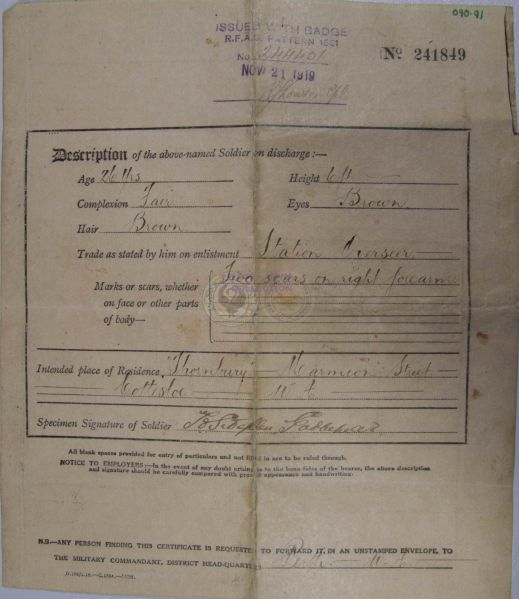 090-91
ISSUED WITH BADGE
R.F.A.S. PATTERN 1881
No. 244401
NOV 21 1919
No 241849
Description of the above-named Soldier on discharge:—
Age 26 Yrs Height 6 ft
Complexion Fair Eyes Brown
Hair Brown
Trade as stated by him on enlistment Station Overseer
Marks or scars, whether Two scars on right forearm
on face or other parts
of body—
Intended place of Residence "Thornbury" Marmion Street
Cottesloe W A
Specimen Signature of Soldier
All blank spaces provided for entry of particulars and not filled in are to be ruled through.
NOTICE TO EMPLOYERS:—In the event of any doubt arising as to the bona fides of the bearer, the above description
and signature should be carefully compared with present appearance and handwriting.
N.B.—ANY PERSON FINDING THIS CERTIFICATE IS REQUESTED TO FORWARD IT, IN AN UNSTAMPED ENVELOPE, TO
THE MILITARY COMMANDANT, DISTRICT HEAD-QUARTERS Perth W A